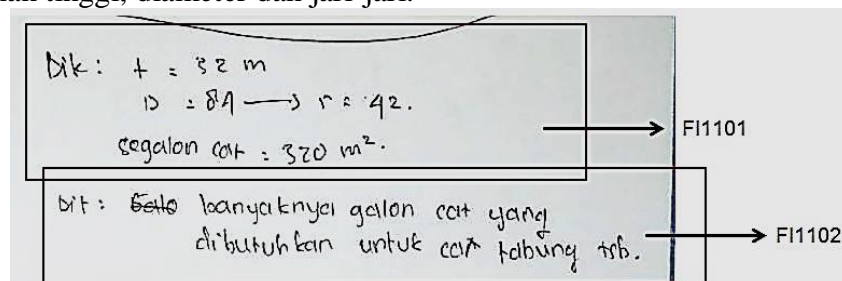 dan tinggi, diameter dan jari-jari.
Dik : t = 32 m
D = 84 → r = 42.
segalon cat = 320 m².
FI1101
Dit : banyaknya galon cat yang
dibutuhkan untuk cat tabung tsb.
FI1102